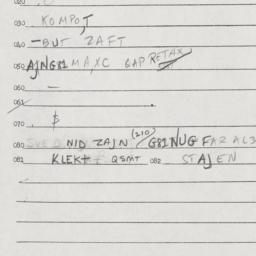 030. KOMPOT
040. -BUT ZAFT
050. AJNG81 MAXC GAP RETAX
060. -
061.
070. $
080. NID ZAJN (210) / G81NUG FAR ALS
081. KLEKT QSMT 082. STAJEN